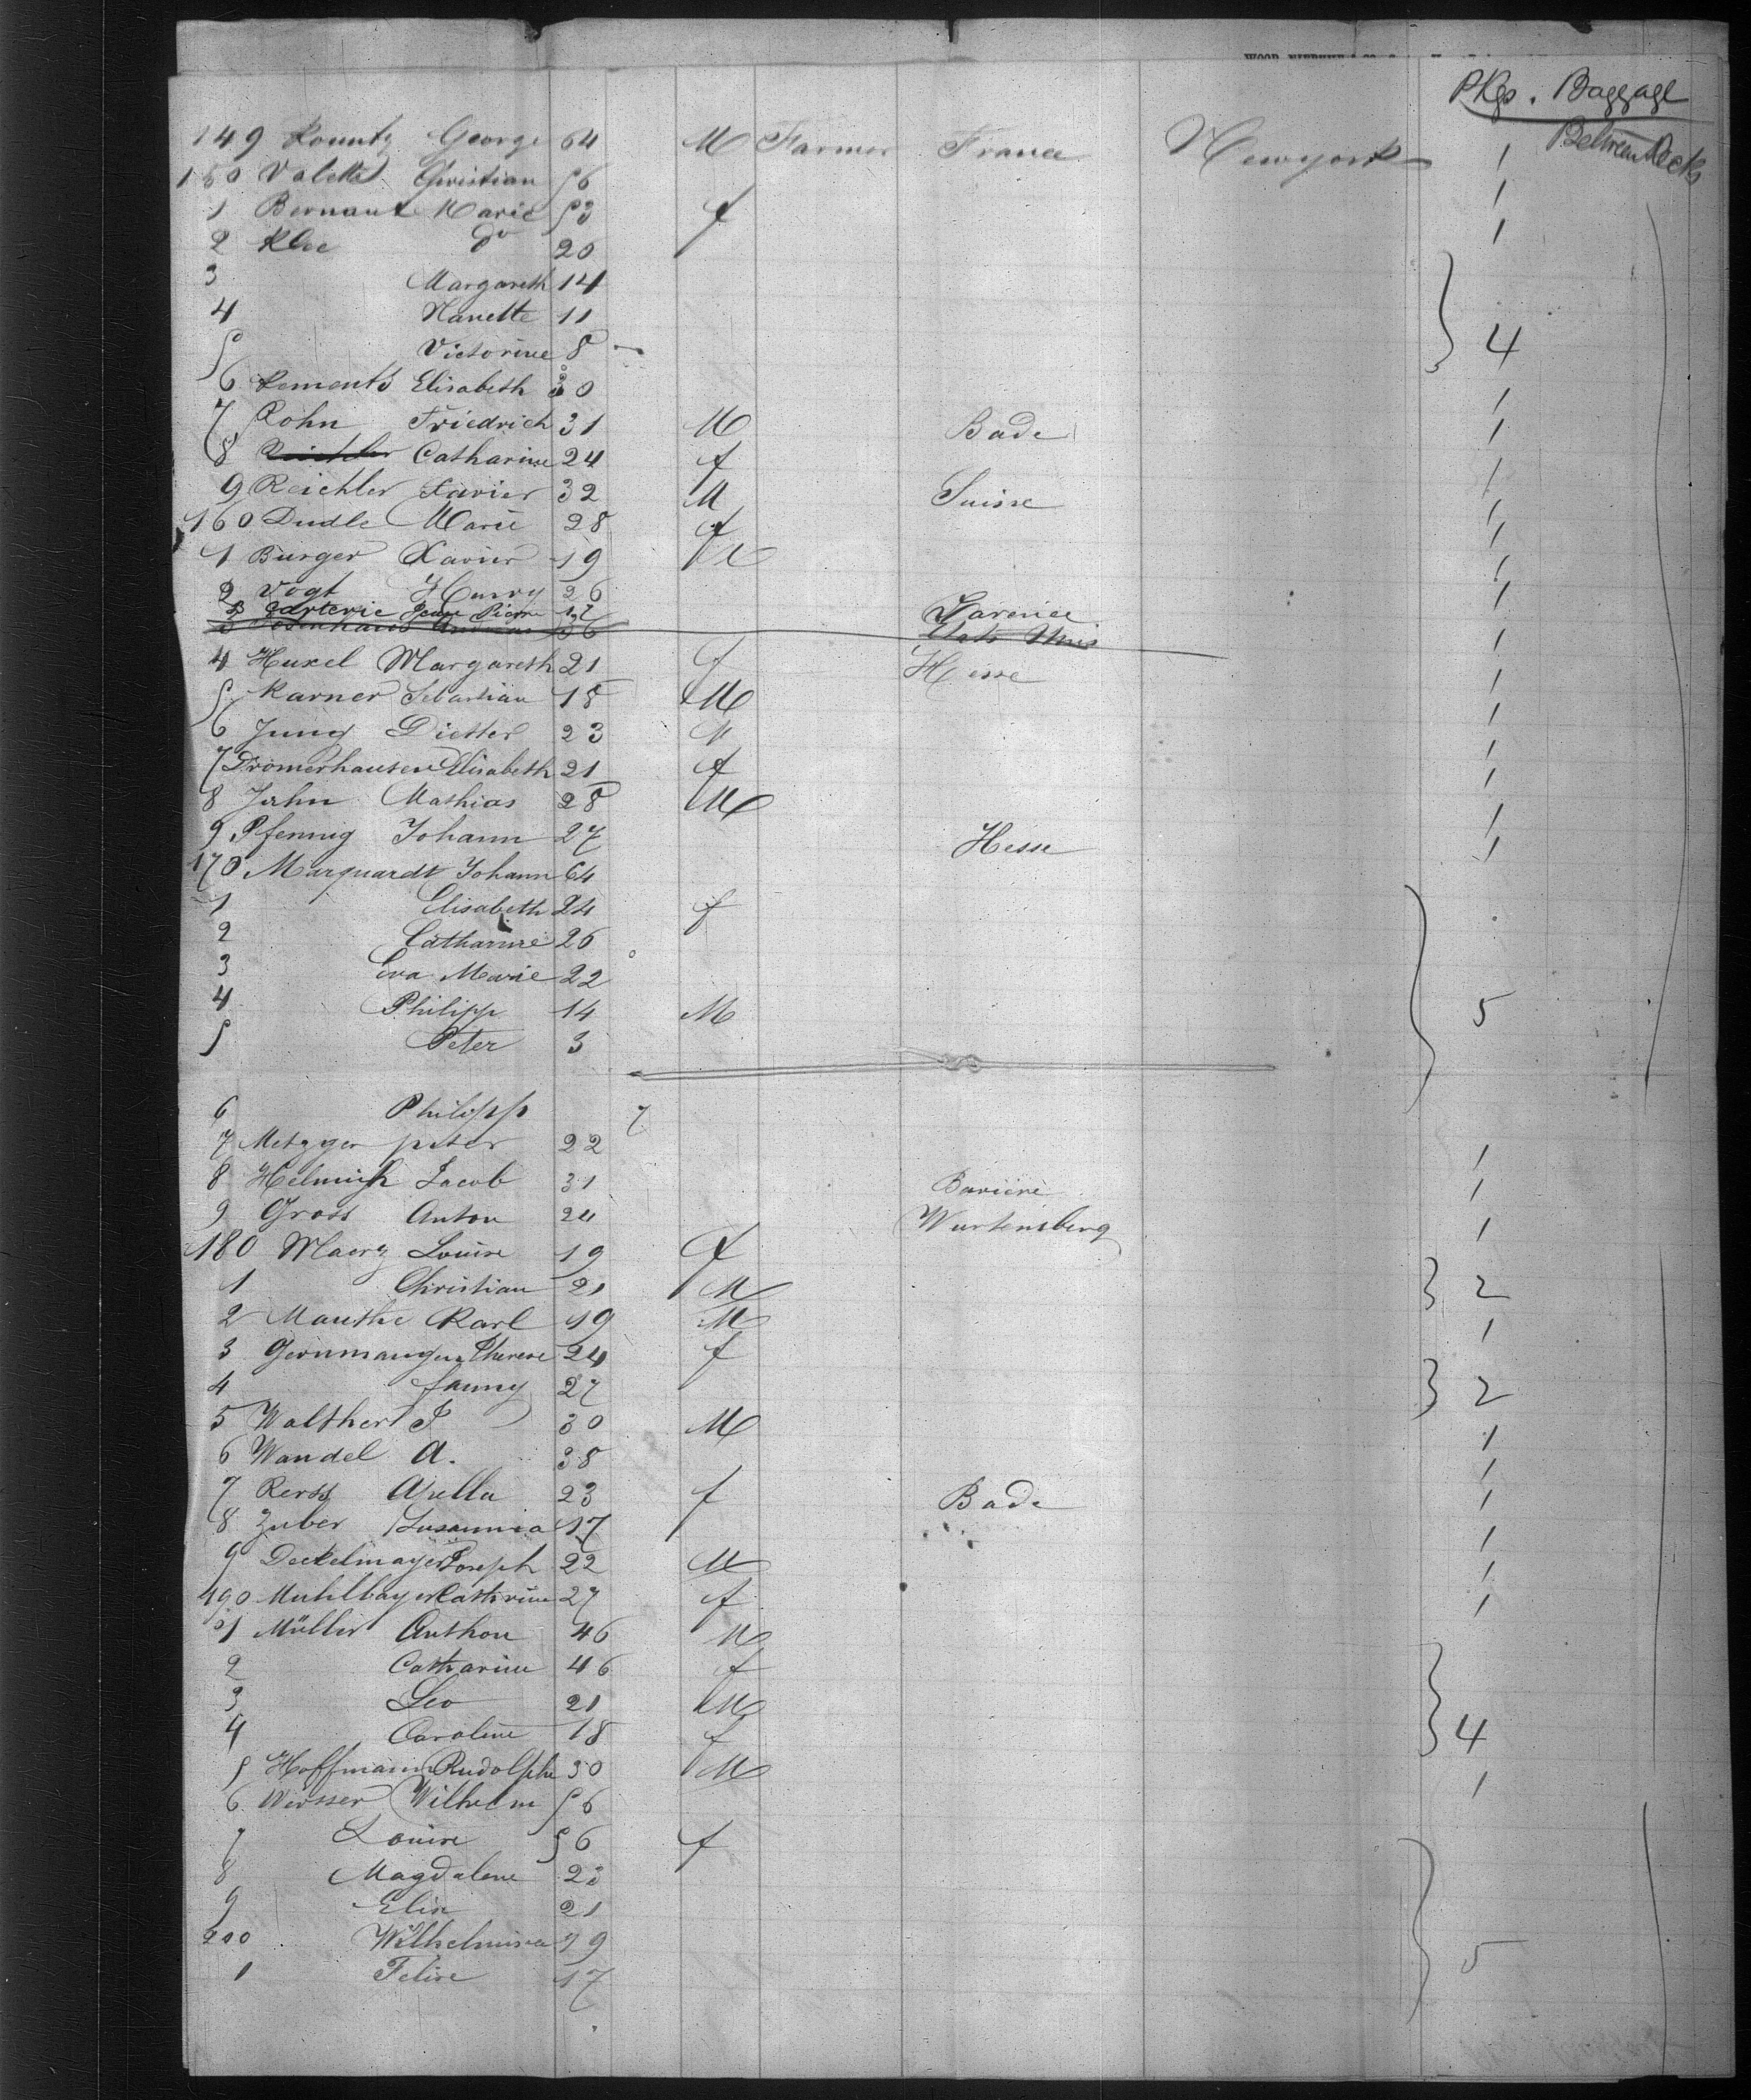 Pkgs. Baggage
149 Kountz George 64 M Farmer France Newyork 1 Between Decks
150 Valette Christian 56 1
1 Bernant Marie 53 f 1
2 Klee do 20
3 Margareth 14
4 Nanette 11
5 Victorine 8 4
6 Elisabeth 30 1
7 Rohn Friedrich 31 M Bade 1
8 Catharine 24 f 1
9 Reichler Favier 32 M Suisse 1
160 Dudle Marie 28 f 1
1 Burger Xavier 19 M 1
2 Vogt Henry 26 1
3 Jean Pierre
Etats Unis
4 Huxel Margareth 21 f Hesse 1
5 Karner Sebastian 18 M 1
6 Jung Dietter 23 M 1
7 Dromerhausen Elisabeth 21 f 1
8 Jahn Mathias 28 M 1
9 Pfennig Johann 27 Hesse 1
170 Marquardt Johann 64
1 Elisabeth 24 f
2 Catharine 26
3 Eva Marie 22
4 Philipp 14 M 5
5 Peter 3
6 Philipp 7
7 Metzger peter 22 1
8 Helmich Jacob 31 Baviere 1
9 Gross Anton 24 Wurtemberg 1
180 Maerz Louise 19 f
1 Christian 21 M 2
2 Mauthe Karl 19 M 1
3 Therese 24 f
4 fanny 27 2
5 Walther J 30 M 1
6 Wandel A. 38 1
7 Apella 23 f Bade 1
8 Zuber Susanna 17 1
9 Deckelmayer Joseph 22 M 1
190 Muhlbayer Cathrine 27 f 1
1 Müller Anthon 46 M
2 Catharine 46 f
3 Leo 21 M
4 Caroline 18 f 4
5 Hoffmann Rudolphe 30 M 1
6 Wilhelm 56
7 Louise 56 f
8 Magdalene 23
9 Elise 21
200 Wilhelmina 19 5
1 Felise 17